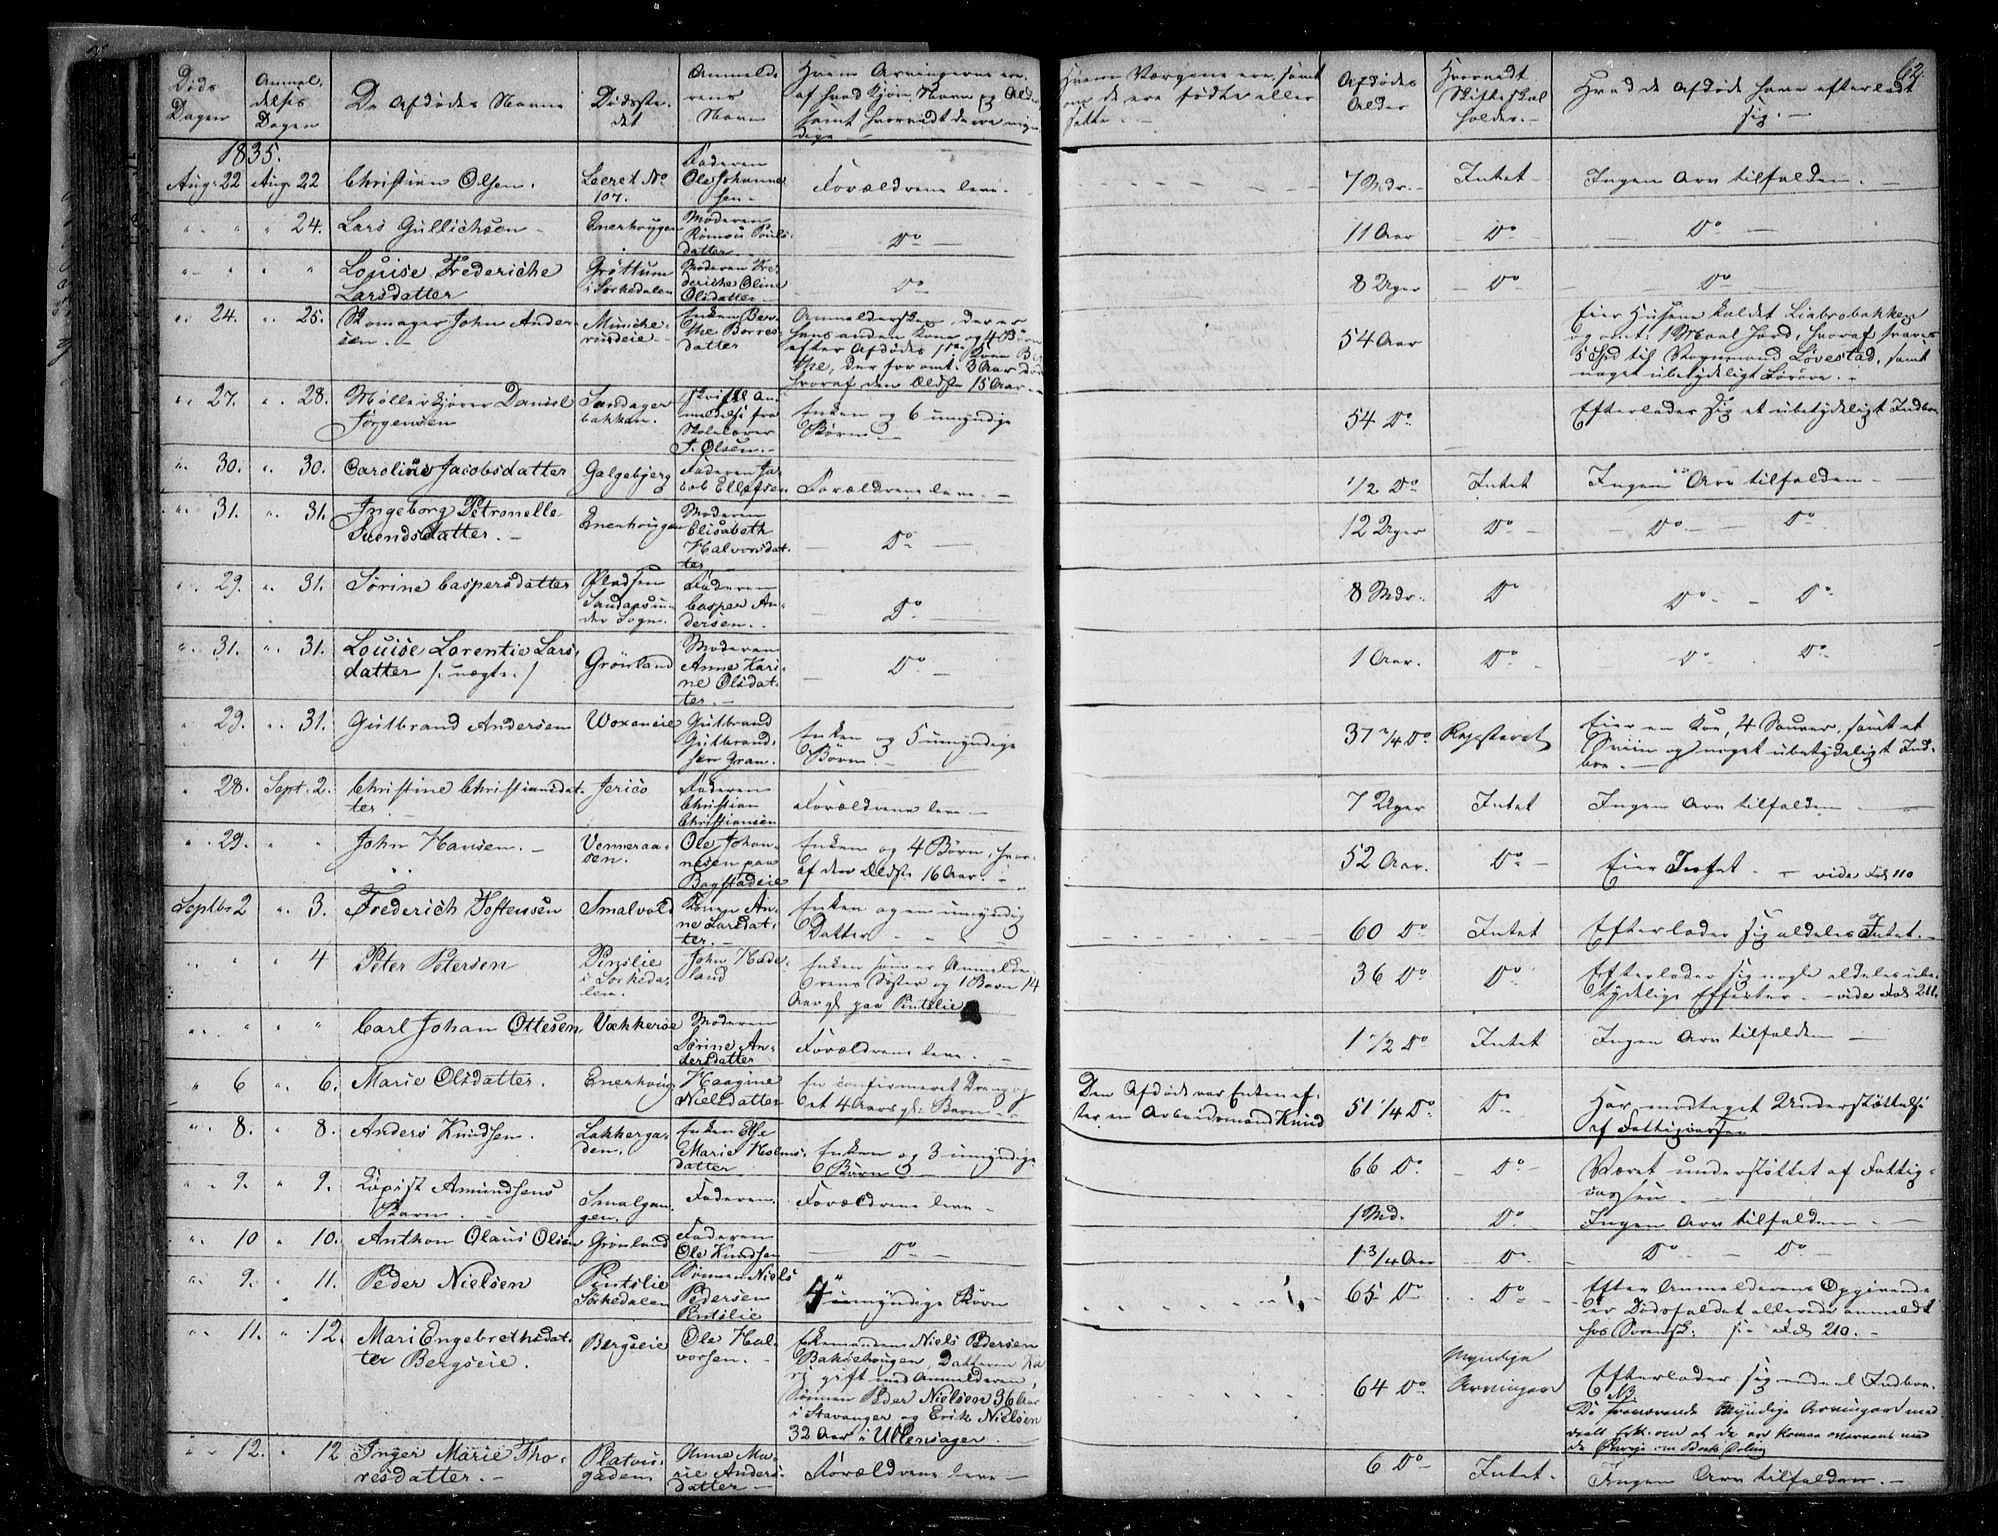 62.
Døds Dagen
Anmeldelses Dagen
De Afdødes Navne
Dødsstedet
Anmelderens Navn
Hvem Arvingerne ere, af hvad Kjøn, Navn og Alder, samt hvorvidt de ere myndige
Hvem Værgerne ere, samt om de ere fødte eller satte.
Afdødes Alder
Hvorvidt Skifte skal holdes.
Hvad de Afdøde have efterladt sig.
1835.
Aug. 22 Aug. 22 Christian Olsen. Leeret No 107. Faderen Ole Johannesen Forældrene leve. 7 Mdr. Intet Ingen Arv tilfalden.
" " " 24. Lars Gullichsen Enerhougen Moderen Poulsdatter Do 11 Aar Do Do
" " " " Louise Frederiche Larsdatter Grøttum i Sørkedalen Moderen Frederiche Oline Olsdatter Do 8 Uger Do Do
" 24. " 25. Skomager John Andersen. Muncherudeie Enken Berthe Borresdatter Anmeldersken, der er hans anden Kone, og 4 Børn efter Afdødes 1ste Kone Berthe, der for omt. 3 Aar døde hvoraf den Ældste 15 Aar. 54 Aar Eier Husene kaldet Liabrobakken og omt. 1 Maal Jord, hvoraf svares 5 Spd til Løvestad, samt noget ubetydeligt Løsøre.
" 27. " 28. Møllerkjører Daniel Jørgensen Sandagerbakken. Skriftl. Anmeldelse fra Skolelærer J. Olsen. Enken og 6 umyndige Børn 54 Do Efterlader sig et ubetydeligt Indboe.
" 30. " 30. Caroline Jacobsdatter Galgebjerg Faderen Jacob Ellefsen Forældrene leve. 1/2 Do Intet Ingen Arv tilfalden
" 31. " 31. Ingeborg Petronelle Svendsdatter. Enerhougen Moderen Elisabeth Halvorsdatter Do 12 Uger Do Do Do
" 29. " 31. Sørine Caspersdatter Pladsen Sognn. Faderen Casper Andersen. Do 8 Mdr. Do Do Do
" 31. " 31. Louise Lorentie Larsdatter /: uægte :/ Grønland Moderen Anne Karine Olsdatter. Do 1 Aar. Do Do Do
" 29. " 31. Gulbrand Andersen Woxeneie Gulbrand Gulbrandsen Gran. Enken og 5 umyndige Børn. 37 3/4 Do Registeret Eier en Koe, 4 Sauer, samt et Sviin og noget ubetydeligt Indboe.
" 28. Sept. 2. Christine Christiansdatter Jerico Faderen Christian Christiansen Forældrene leve 7 Uger Intet Ingen Arv tilfalden
" 29. " " John Hansen. Vennersaasen. Ole Johannesen paa Bogstadeie Enken og 4 Børn, hvoraf den Ældste 16 Aar. 52 Aar. Do Eier Intet. vide Fol 110
Septbr 2 " 3. Frederich Toftensen Smalvold Konen Anne Larsdatter. Enken og en umyndig Datter 60 Do Intet Efterlader sig aldeles Intet.
" " " 4 Peter Petersen Pinslie i Sørkedalen. John Hadeland Enken som er Anmelderens Søster og 1 Barn 14 Aar gl. paa Pintslie 36 Do Do Efterlader sig nogle aldeles ubetydelige Effecter. vide Fol. 211.
" " " " Carl Johan Ottesen Vækkerøe Moderen Sørine Andersdatter Forældrene leve. 1 1/2 Do Intet Ingen Arv tilfalden
" 6 " 6. Marie Olsdatter. Enerhoug. Haagine Nielsdatter En confirmeret Dreng og et 4 Aars gl. Barn. Den Afdøde var Enken efter en Arbeidsmand Knud 51 1/4 Do Do Har modtaget Understøttelse af Fattigvæsen
" 8. " 8. Anders Knudsen. Lakkergaden. Enken Else Marie Holmsdatter Enken og 3 umyndige Børn 66 Do Do Været understøttet af Fattigvæsen.
" 9. " 9. Qvist Amundsens Barn. Smalgangen. Faderen. Forældrene leve. 1 Md. Do Ingen Arv tilfalden.
" 10 " 10. Anthon Olaus Olsen Grønland Faderen Ole Knudsen Do 1 3/4 Aar Do Do Do
" 9. " 11. Peder Nielsen Pintslie Sørkedalen Sønnen Niels Pedersen Pintslie 4 umyndige Børn 65 Do Do Efter Anmelderens Opgivende er Dødsfaldet allerede anmeldt hos Sorensk. Fol. 210.
" 11. " 12. Mari Engebrethsdatter Bergseie. Bergseie Ole Halvorsen. Ekemanden Niels Pedersen Bakkehougen, Datteren Kari gift med Anmelderen, Sønnen Peder Nielsen 36 Aar i Stavanger og Erik Nielsen 32 Aar i Ullensager. 64 Do Myndige Arvinger Efterlader sig endeel Indboe. NB. De fraværende Myndige Arvinger
" 12. " 12 Inger Marie Thoresdatter. Platousgaden. Anne Marie Andersdatter Forældrene leve 6 Do Intet. Ingen Arv tilfalden.